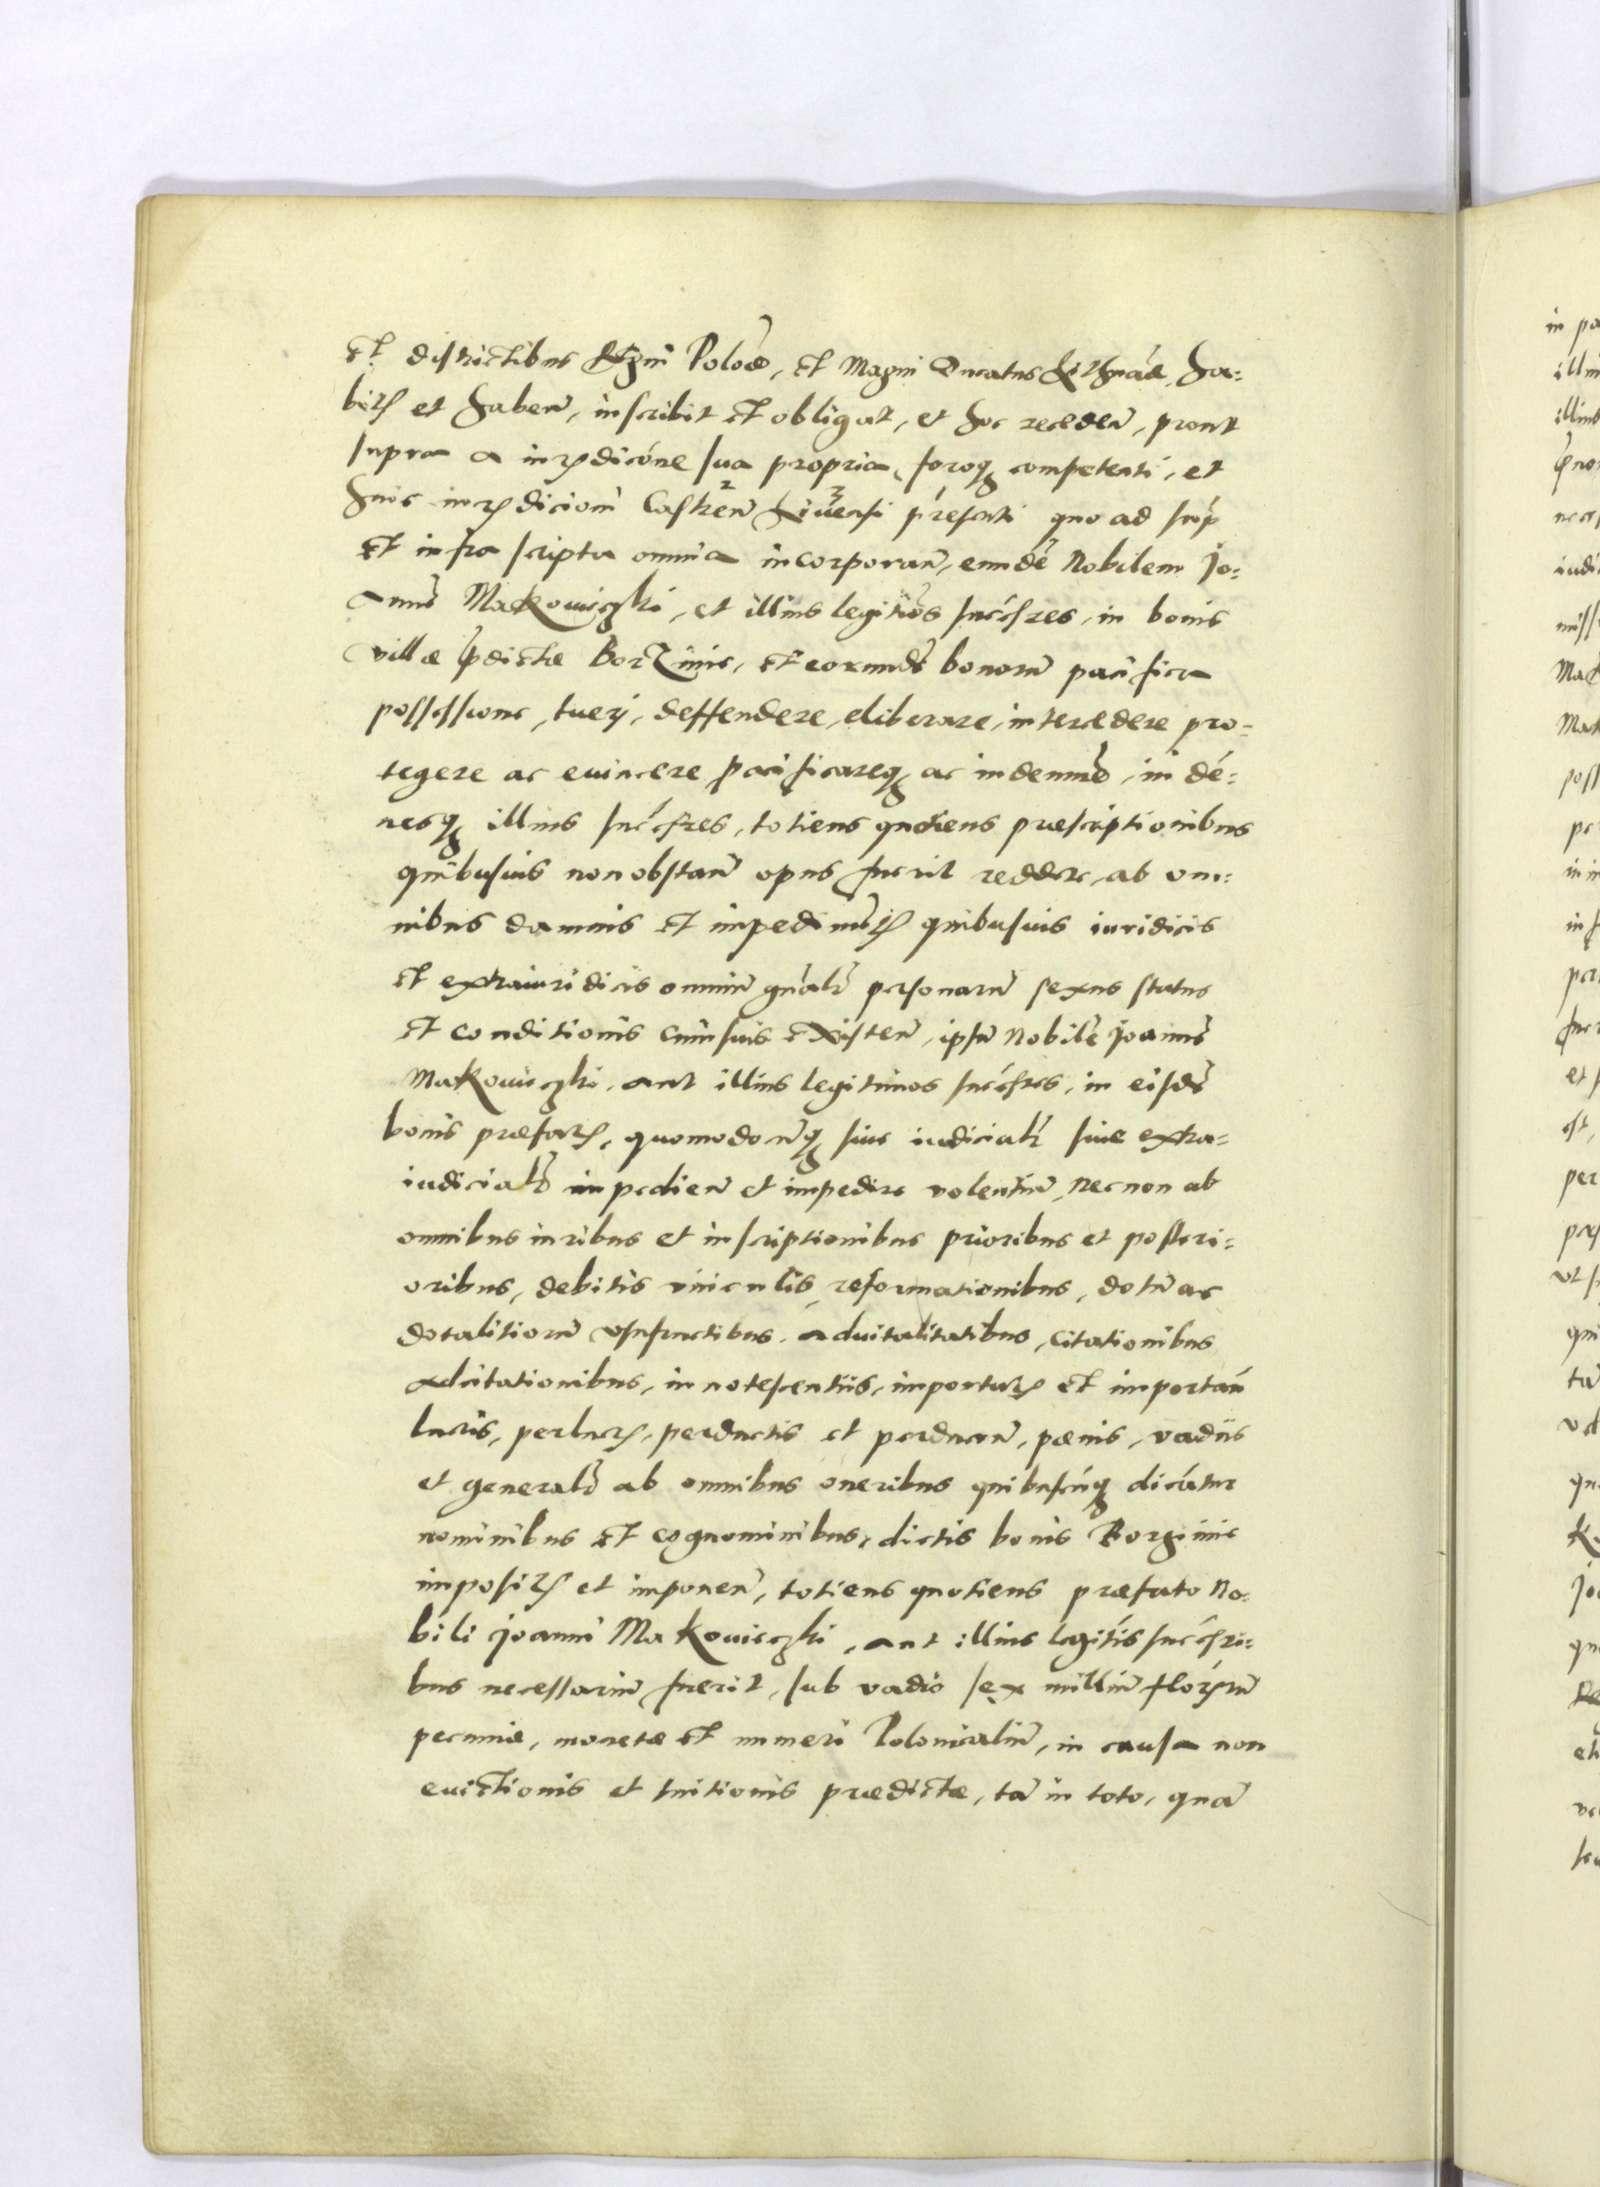 et districtibus Regni Poloae, et Magni Ducatus Lithuaae, ha-
bitis et haben, inscribit et obligat, et hoc receden, prout
supra a iurisdicone sua propria, foroq competenti, et
huic iurisdicioni Castren Livensi presenti quo ad sup
et infra scripta omnia incorporan, eunde Nobilem Jo-
anne Makowieczki, et illius legitios succsres, in bonis
villae predictae Borzimie, et eorunde bonoru pacifica
possessione, tueri, deffendere, eliberare, intercedere pro-
tegere ac evincere pacificareq ac indemne, inde-
nesq illius succsres, totiens quotiens praescriptionibus
quibusuis non obstan opus fuerit reddere, ab om-
nibus damnis et impedimetis quibusuis iuridicis
et extraiuridicis omniu gnalr personaru sexus status
et conditionis cuiusuis existen, ipsu Nobile Joanne
Makowieczki, aut illius legitimos succsres, in eisde
bonis praefatis, quomodocuq siue iudicialr siue extra-
iudicialr impedien et impedire volentiu, Nec non ab
omnibus iuribus et inscriptionibus prioribus et posteri-
oribus, debitis vinculis, reformationibus, dotu ac
dotalitioru vsufructibus, aduitalitatibus, citationibus
adcitationibus, innotescentiis, importatis et importan
lucris, perlucris, perductis et perducen, paenis, vadiis
et generalr ab omnibus oneribus quibuscuq dicatur
nominibus et cognominibus, dictis bonis Borzimie
impositis et imponen, totiens quotiens praefato No-
bili Joanni Makowieczki, aut illius legitis succsri-
bus necessariu fuerit, sub vadio sex milliu florenu
pecuniae, monetae et numeri Polonicaliu, in causa non
euictionis et tuitionis praedictae, ta in toto, qua